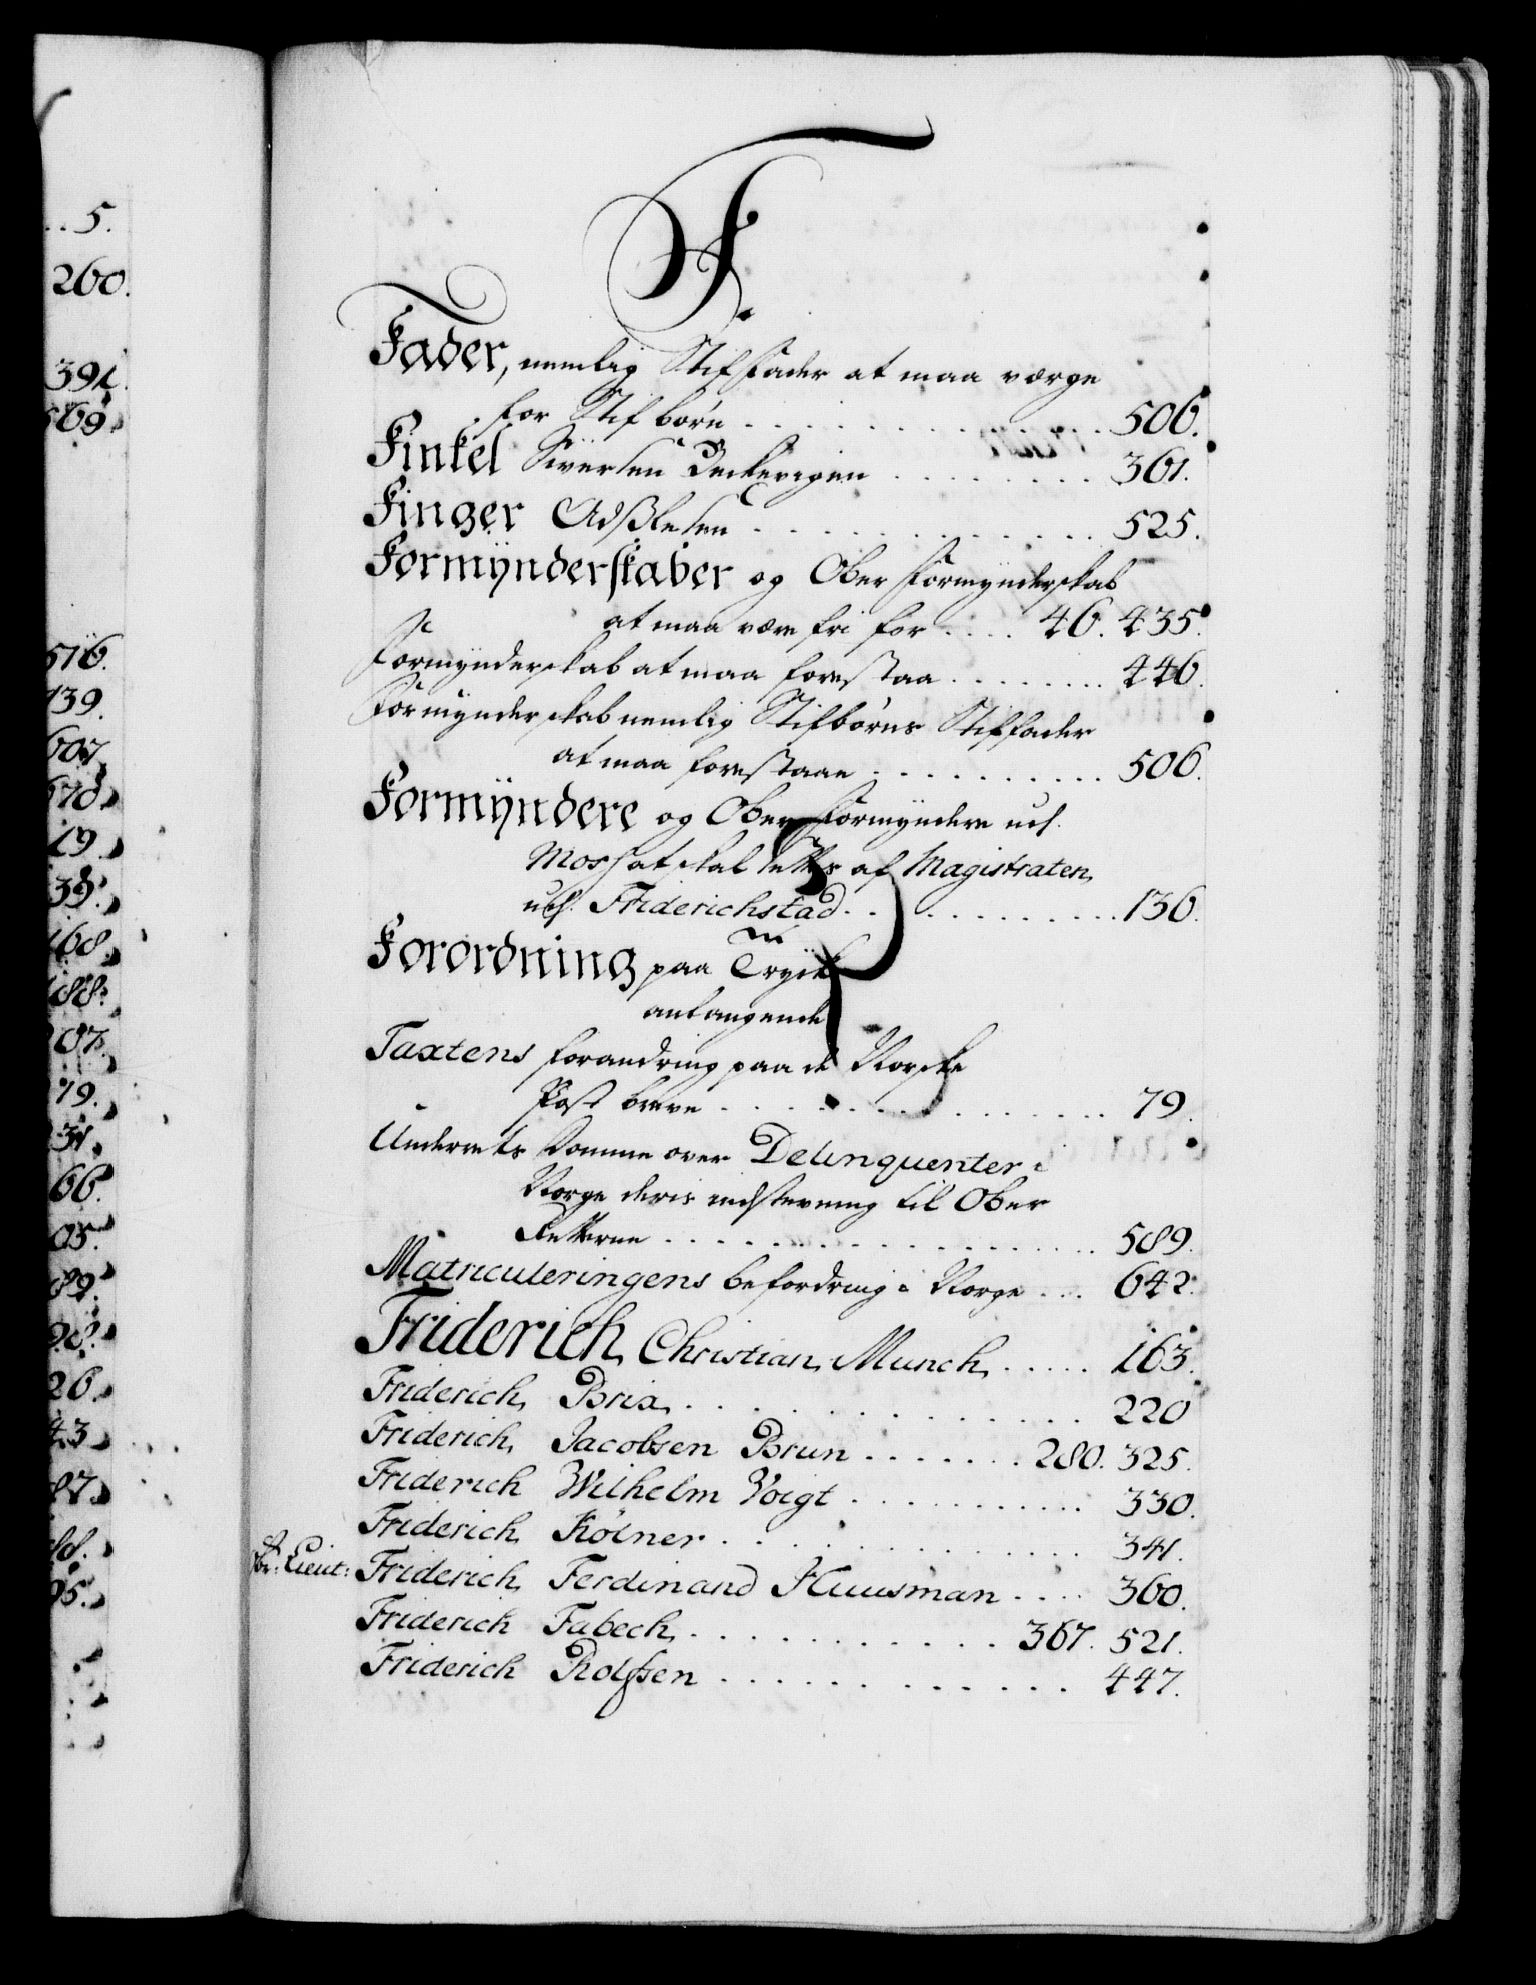 F.
Fader, nemlig Stiffader at maa værge
for Stifbørn . . . . . . . . . . 506.
Finkel Siversen . . . . . . . . 361.
Finger . . . . . . . . . . . . . 525.
Formÿnderskaber og Ober Formynderskab
at maa være fri for . . . . 46. 435.
Formynderskab at maa forestaa . . . . . . . . 446.
Formynderskab nemlig Stifbørns Stiffader
at maa forestaae . . . . . . . . . . 506.
Formÿndere og Ober Formyndere ud.
Moss at skal settes af Magistraten
ud. Friderichstad . . . . . . . . . . . 136.
Forordning paa Tryck
anlangende
Taxtens forandring paa de Norske
Post breve . . . . . . . . . . . . . . . 79.
Underrets Domme over Delinquenter i
Norge deris indstevning til Ober
Retterne . . . . . . . . . . . . . . . . . 589.
Matriculeringens befordring i Norge . . . 642.
Friderich Christian Munch . . . . . 163.
Friderich Brix . . . . . . . . . . . . . . . 220
Friderich Jacobsen Brun . . . . . . . 280. 325.
Friderich Wilhelm Voigt . . . . . . . . . . . 330.
Friderich Kölner . . . . . . . . . . . . . . 341.
Obr: Lieut: Friderich Ferdinand Huusman . . . . 360.
Friderich Fabech . . . . . . . . . . . . 367. 521.
Friderich Rolfsen . . . . . . . . . . . . . 447.
5.
260.
391.
569.
516.
139.
607.
670.
19.
39.
168.
188.
207.
79.
31.
66.
05.
89.
28.
26.
43
87.
88.
95.